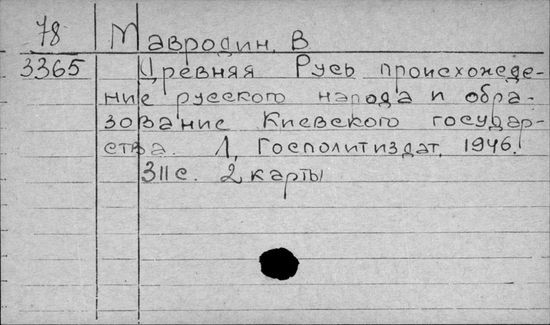 78 Мавродин, В
3365 Древняя Русь происхожде-
ние русского народа и обра-
зование Киевского государ-
ства. Л, Госполитиздат, 1946.
311 с. 2 карты